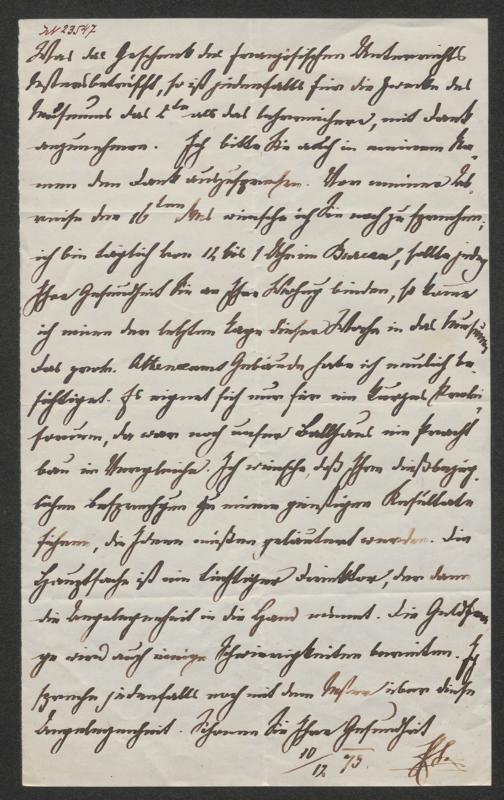 IN 23547
Was das Geschenk des französischen Unterrichts
betrifft, so ist jedenfalls für die Zwecke des
Museums das als das lehrreichere, mit Dank
anzunehmen. Ich bitte Sie auch in meinem Na-
men den Dank auszusprechen. Vor meiner
den 16ten wünsche ich Sie noch zu sprechen;
ich bin täglich von 12 bis 1 Uhr im Bureau, sollte jedoch
Ihre Gesundheit Sie an Ihre Wohnung binden, so komme
ich einen der letzten Tage dieser Woche in das Museum
Das prov. Gebäude habe ich neulich be-
sichtiget. Es eignet sich nur für ein kurzes Provi-
sorium, da war noch unser Ballhaus ein Pracht
bau im Vergleiche. Ich wünsche, daß Ihre dießbezüg-
lichen Besprechungen zu einem günstigen Resultate
führen, die Ideen müßen geläutert werden. Die
Hauptsache ist ein tüchtiger Direktor, der dann
die Angelegenheit in die Hand nimmt. Die Geldfra-
ge wird auch einige Schwierigkeiten bereiten. Ich
spreche jedenfalls noch mit dem über diese
Angelegenheit. Schonen Sie Ihre Gesundheit
10/12 75.